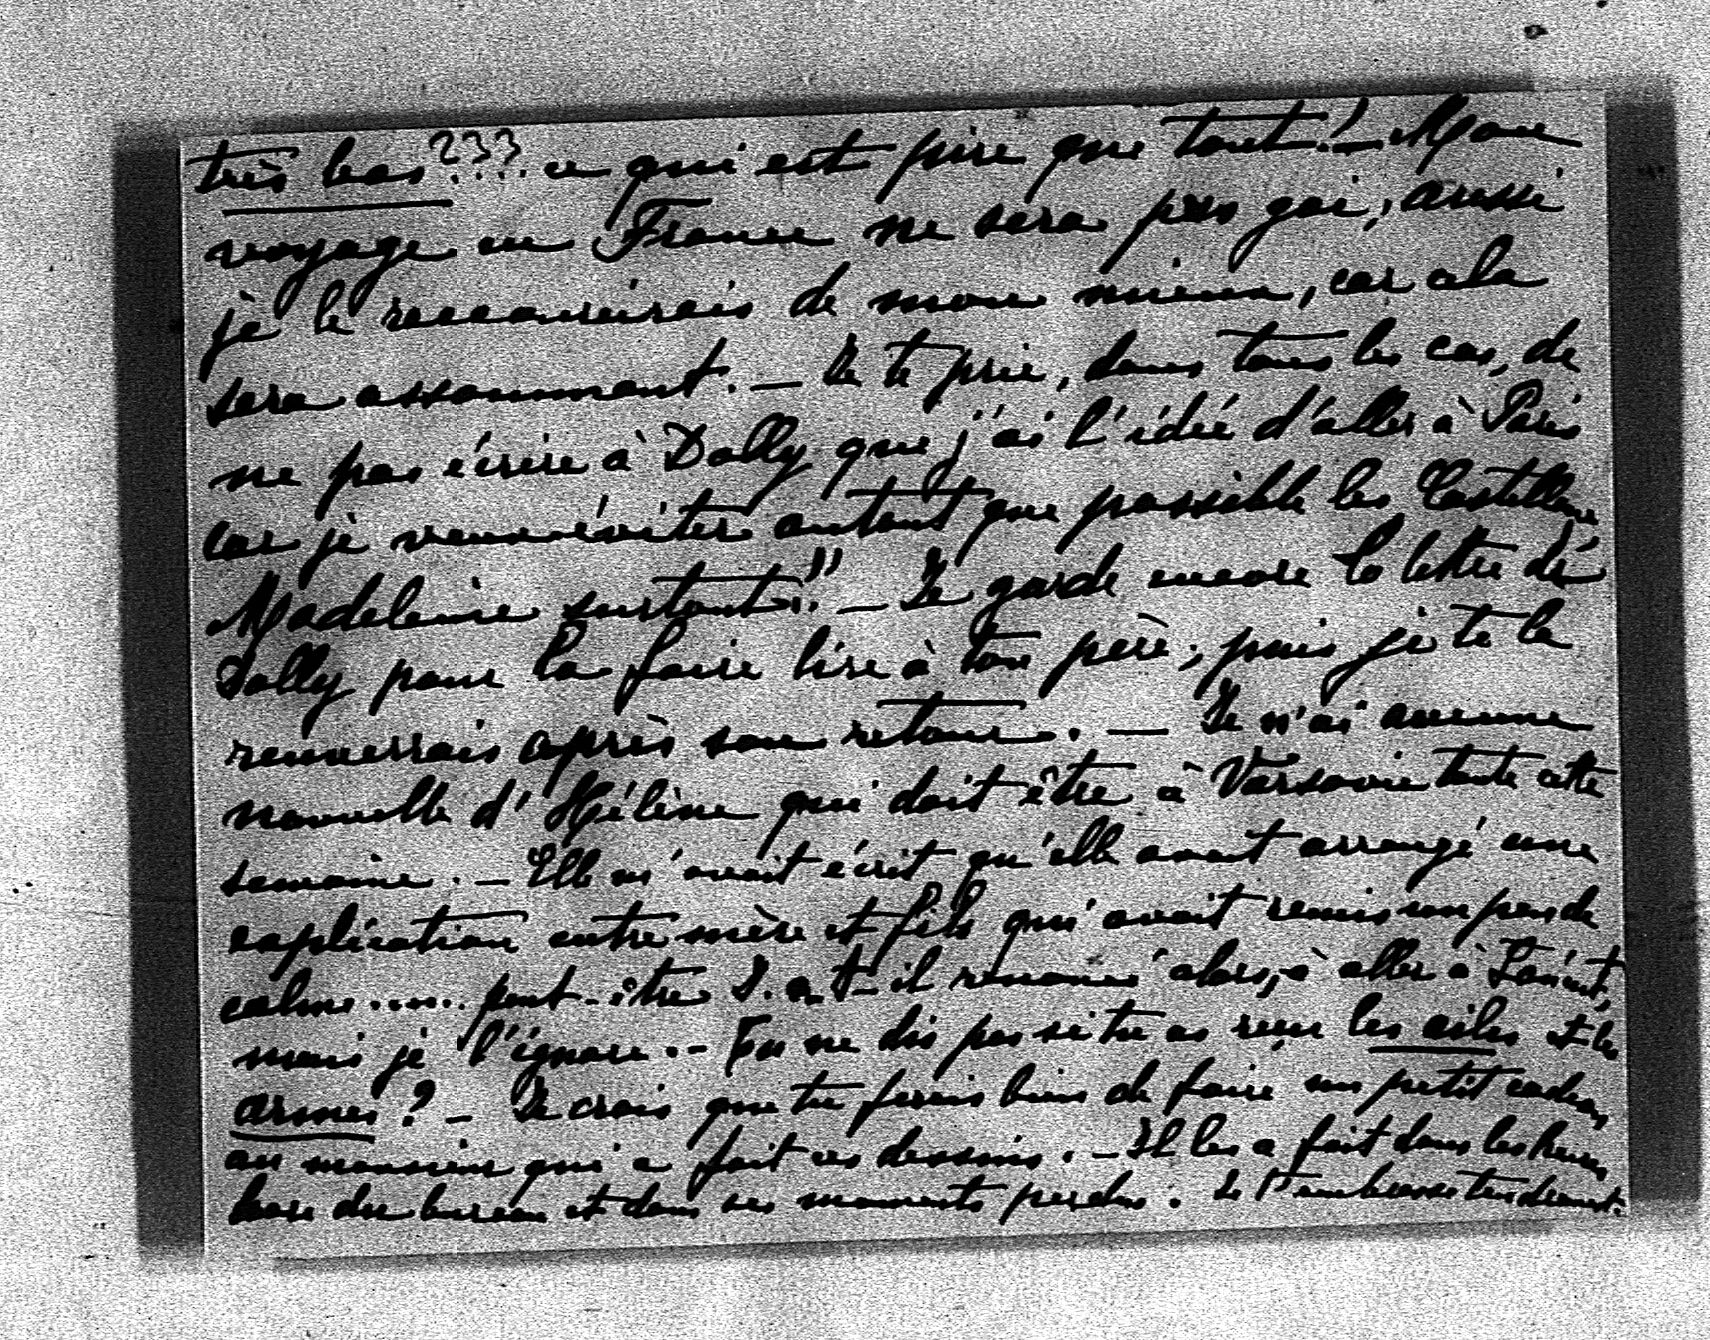 très bas???.... ce qui est pire que tout! — Mon
voyage en France ne sera pas gai, aussi
je le raccourcirais de mon mieux, car cela
sera assommant. — Je te prie, dans tous les cas, de
ne pas écrire à Dolly que j'ai l'idée d'aller à Paris
car je veux éviter autant que possible les Castellane
Madeleine surtout!! — Je garde encore la lettre de
Dolly pour la faire lire à ton père, puis je te la
renverrais après son retour. — Je n'ai aucune
nouvelle d'Hélène qui doit être à Varsovie toute cette
semaine. — Elle m'avait écrit qu'elle avait arrangé une
explication entre mère et fils qui avait remis un peu de
calme..... peut-être J. a-t-il renoncé alors, à aller à
mais je l'ignore. — Tu ne dis pas si tu as reçu les ailes et les
armes? — Je crois que tu ferais bien de faire un petit cadeau
au monsieur qui a fait ces dessins. — Il les a fait dans les heures
hors du bureau et dans ses moments perdus. Je t'embrasse tendrement.